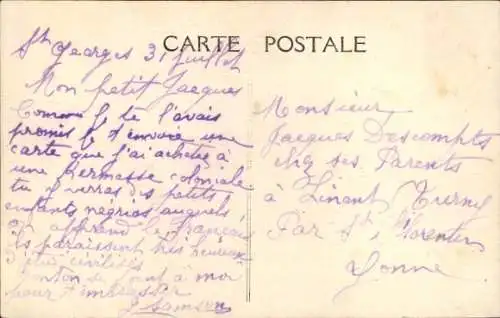 CARTE POSTALE
St Georges 31 juillet
Mon petit Jacques
Comme je te l'avais
promis je t'envoie une
carte que j'ai acheté à
une Kermesse coloniale
tu y verras des petits
enfants négrios auquels
on apprend le français
ils paraissent très heureux
d'être civilisés
tonton se joint à moi
pour t'embrasser
Samson
Monsieur
Jacques Descompts
chez ses Parents
à Linant Turny
Par St Florentin
Yonne